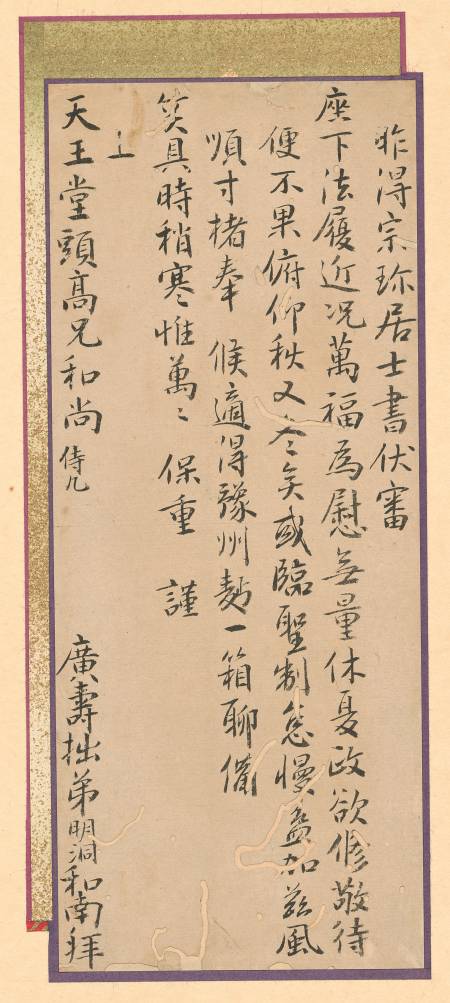 昨得宗珎居士書伏審
座下法履近况萬福為慰無量休夏政欲修敬待
便不果俯仰秋又令矣或臨聖制怠慢益加茲風
順寸楮奉 候適得豫州麪一箱聊備
笑具時稍寒惟萬〻 保重 謹
上
天王堂頭高兄和尚 侍几
廣壽拙弟明洞和南拜